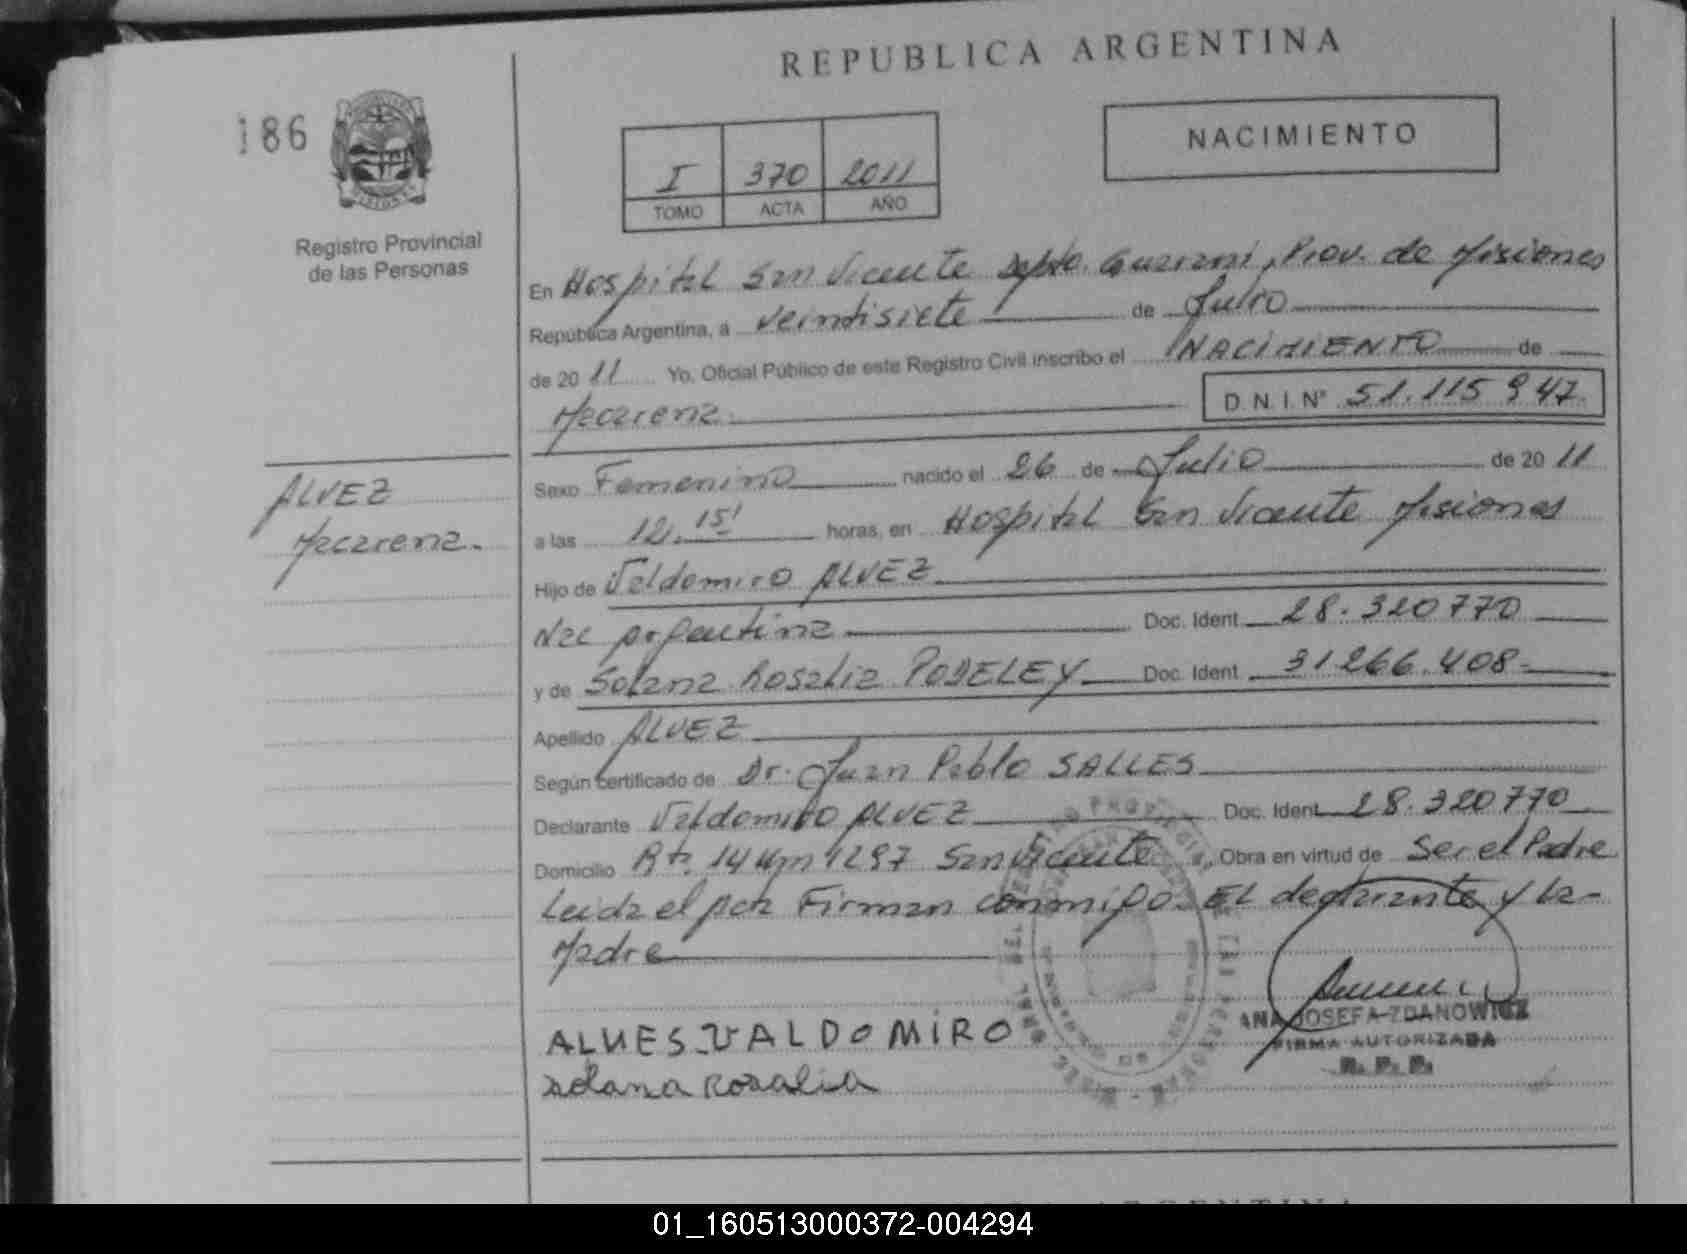 REPUBLICA ARGENTINA
186
NACIMIENTO
I 370 2011
TOMO ACTA AÑO
Registro Provincial
de las Personas
En Hospital San Vicente Depto. Guarani, Prov. de Misiones
República Argentina, a veintisiete de Julio
de 2011 Yo, Oficial Público de este Registro Civil inscribo el NACIMIENTO de
Macarena D.N.I. Nº 51.115947
ALVEZ
Macarena.
Sexo Femenino nacido el 26 de Julio de 2011
a las 12,15' horas, en Hospital San Vicente Misiones
Hijo de Valdomiro ALVEZ
Nac Argentina Doc. Ident. 28.320770
y de Solana Rosalia PODELEY Doc. Ident. 31266.408-
Apellido ALVEZ
Según certificado de Dr. Juan Pablo SALLES
Declarante Valdomiro ALVEZ Doc. Ident. 28.320770
Domicilio Rta 14 Km 1297 San Vicente, Obra en virtud de Ser el Padre
Leida el acta Firman conmigo. EL declarante y la-
Madre
ALUES VALDOMIRO
solana Rosalia
ANA JOSEFA ZDANOWICZ
FIRMA AUTORIZADA
R.P.P.
01_160513000372-004294